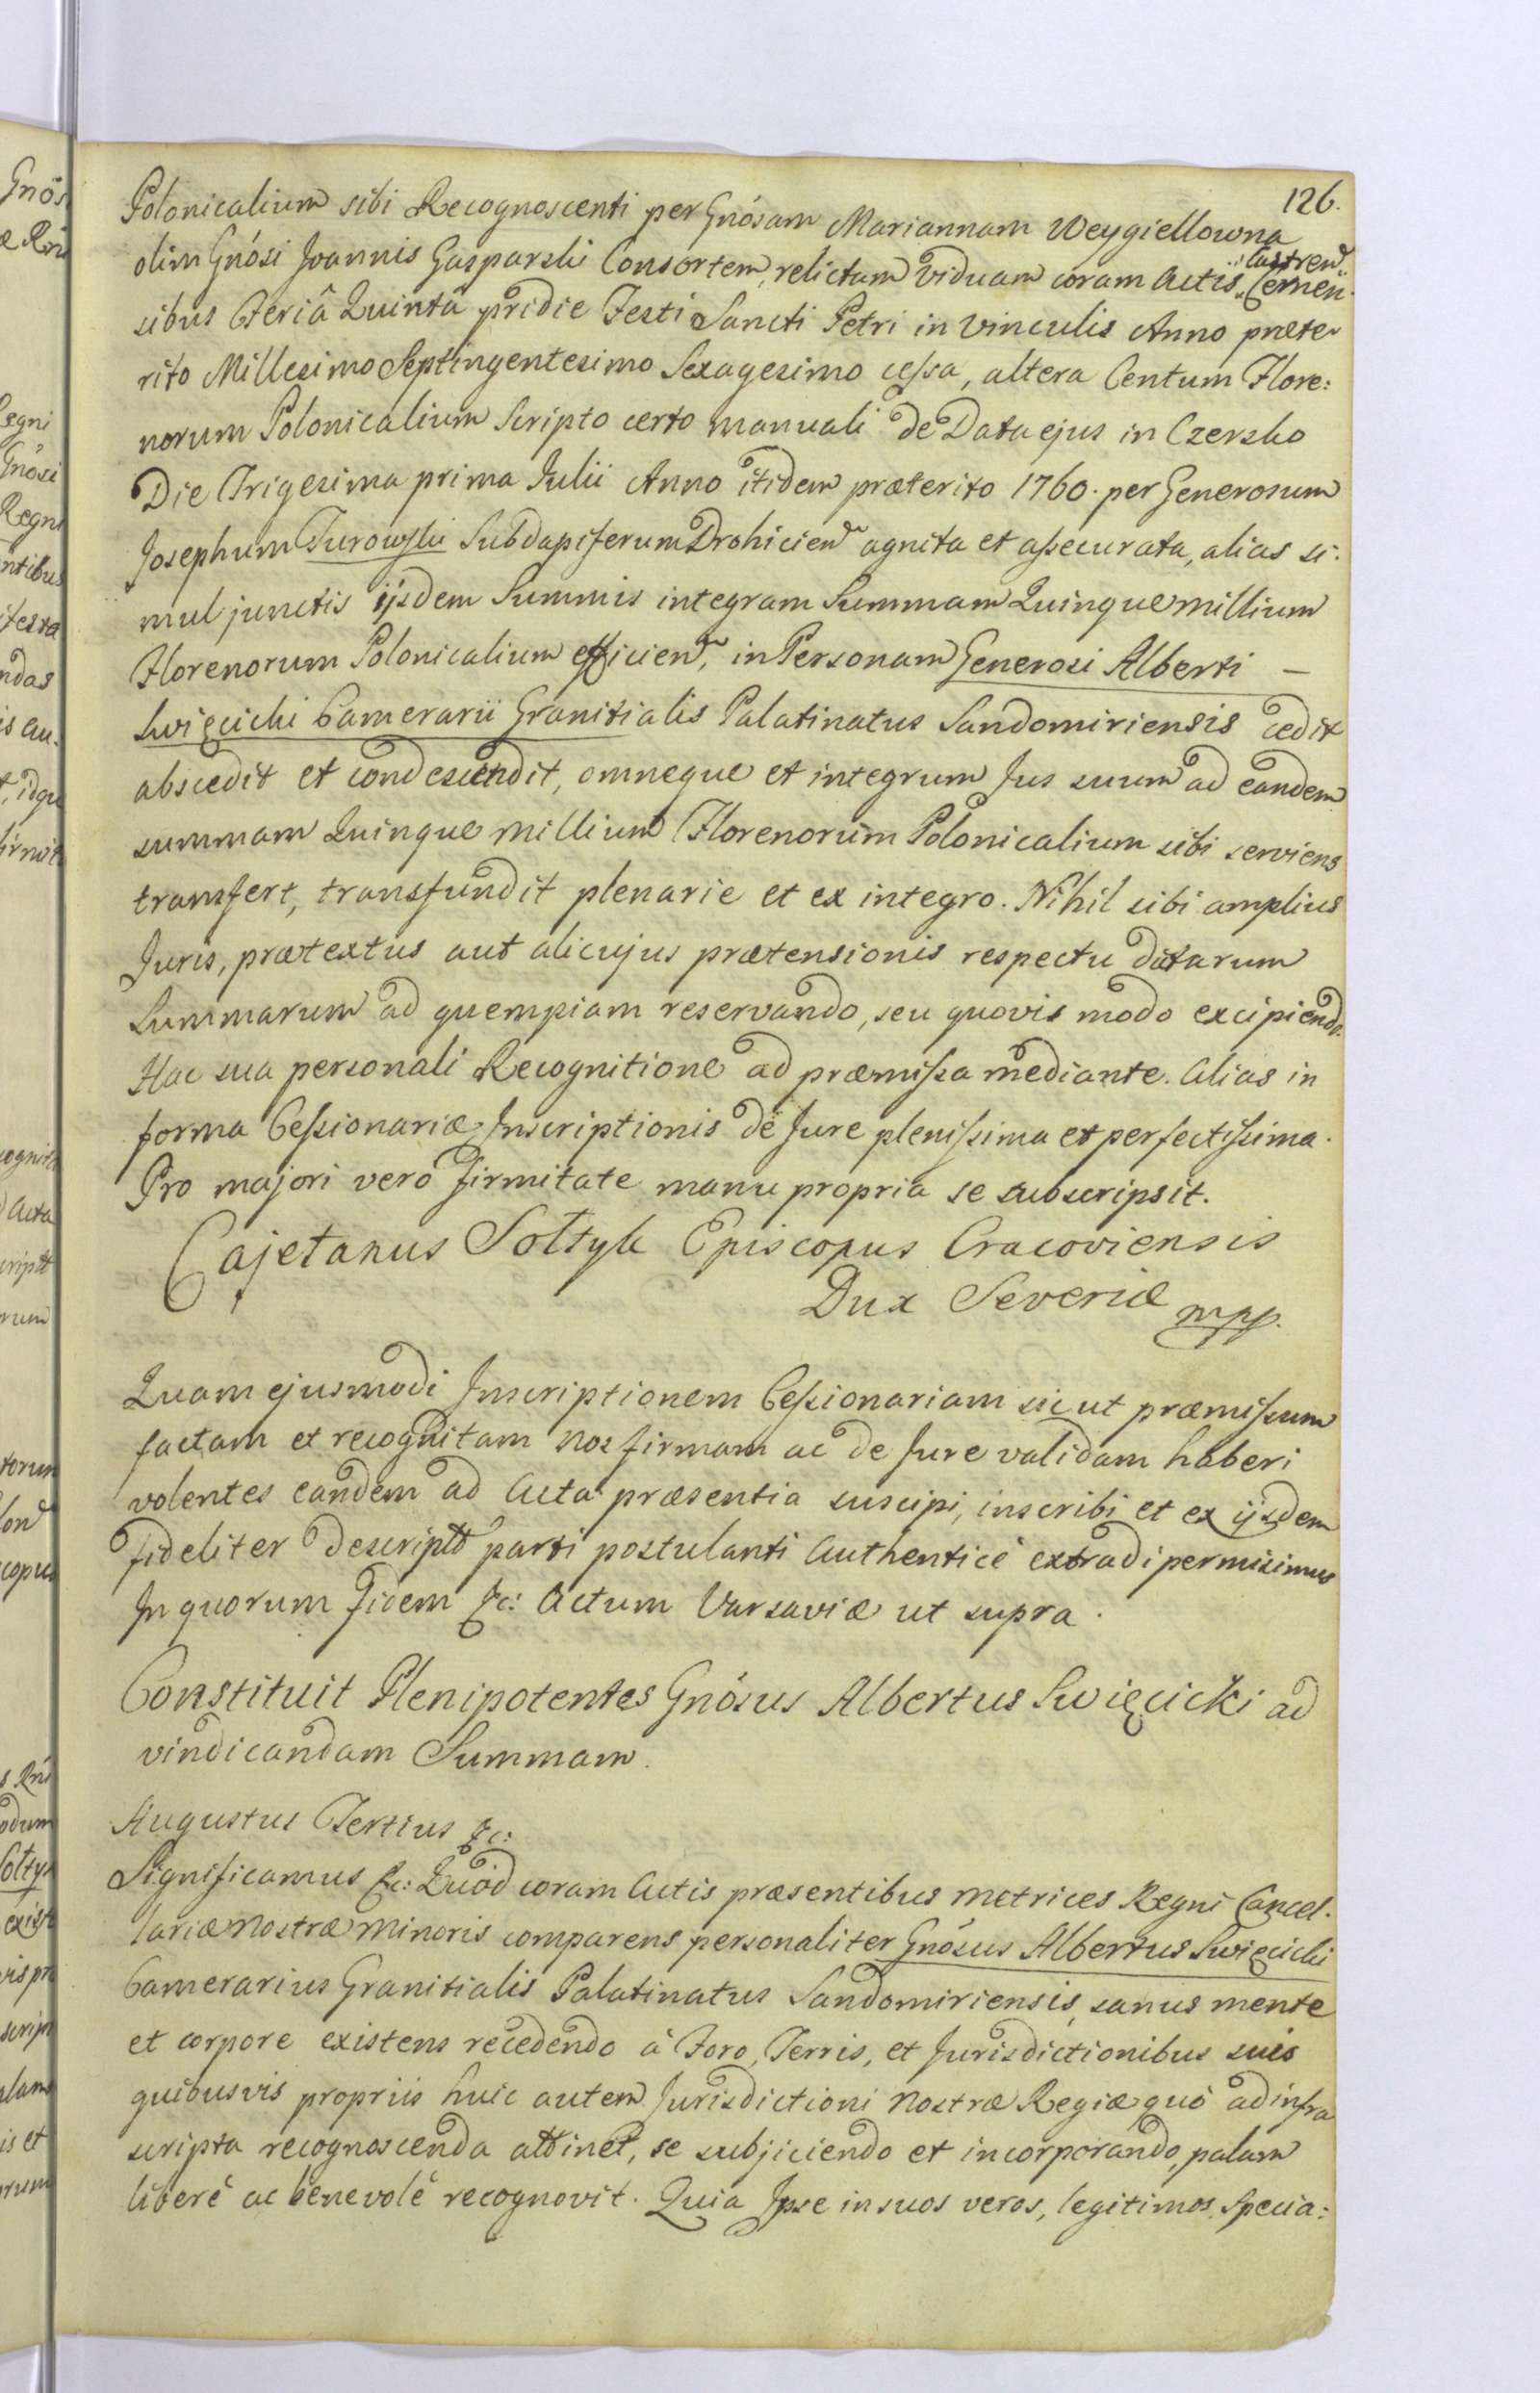 126.
Polonicalium sibi Recognoscenti per Gnósam Mariannam Weygiellowna
olim Gnósi Joannis Gasparski Consortem, relictam Viduam coram Actis Castren. Cernen.
sibus Feriâ Quintâ pridie Festi Sancti Petri in Vinculis Anno præte
rito Millesimo Septingentesimo Sexagesimo cessa, altera Centum Flore:
norum Polonicalium Scripto certo manuali de Data ejus in Czersko
Die Trigesima prima Julii Anno itidem præterito 1760. per Generosum
Josephum Turowski Subdapiferum Drohicien agnita et assecurata, alias si.
mul junctis ijsdem Summis integram Summam Quinque millium
Florenorum Polonicalium efficien, in Personam Generosi Alberti —
Swięcicki Camerarii Granitialis Palatinatus Sandomiriensis cedit
abscedit et condescendit, omneque et integrum Jus suum ad eandem
summam Quinque millium Florenorum Polonicalium sibi serviens
transfert, transfundit plenarie et ex integro. Nihil sibi amplius
Juris, prætextus aut alicujus prætensionis respectu dictarum
Summarum ad quempiam reservando, seu quovis modo excipiendo.
Hac sua personali Recognitione ad præmissa mediante. Alias in
forma Cessionariæ Inscriptionis de Jure plenissima et perfectissima.
Pro majori vero firmitate manu propria se subscripsit.
Cajetanus Sołtyk Episcopus Cracoviensis
Dux Severiæ mpp.
Quam ejusmodi Inscriptionem Cessionariam sicut præmissum
factam et recognitam nos firmam ac de Jure validam haberi
volentes eandem ad Acta præsentia suscipi, inscribi et ex ijsdem
fideliter descriptt parti postulanti Authenticè extradi permisimus
In quorum fidem &c: Actum Varsaviæ ut supra.
Constituit Plenipotentes Gnósus Albertus Swięcicki ad
vindicandam Summam.
Augustus Tertius &c:
Significamus &c: Quod coram Actis præsentibus Metrices Regni Cancel.
lariæ Nostræ Minoris comparens personaliter Gnósus Albertus Swięcicki
Camerarius Granitialis Palatinatus Sandomiriensis, sanus mente
et corpore existens recedendo à Foro, Terris, et Jurisdictionibus suis
quibusvis propriis huic autem Jurisdictioni Nostræ Regiæ quò ad infra
scripta recognoscenda attinet, se subjiciendo et incorporando, palam
liberè ac benevolè recognovit. Quia Ipse in suos veros, legitimos Specia: